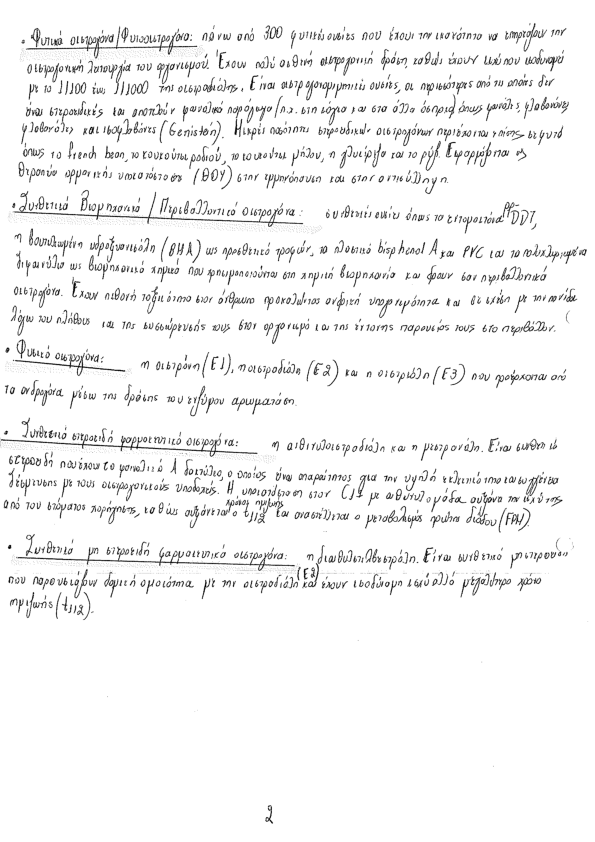 • Φυτικά οιστρογόνα/Φυτοοιστρογόνα: πάνω από 300 φυτικές ουσίες που έχουν την ικανότητα να επηρεάζουν την
οιστρογονική λειτουργία του οργανισμού. Έχουν πολύ ασθενή οιστρογονική δράση καθώς έχουν ισχύ που ισοδυναμεί
με το 1/100 έως 1/1000 της οιστραδιόλης. Είναι οιστρογονομιμητικές ουσίες, οι περισσότερες από τις οποίες δεν
είναι στεροειδικές και αποτελούν φαινολικά παράγωγα (π.χ. στη σόγια και στα άλλα όσπρια) όπως φαινόλες, φλαβονόνες,
φλαβονόλες και ισοφλαβόνες (Genistein). Μικρές ποσότητες στεροειδικών οιστρογόνων περιέχονται επίσης σε φυτά
όπως το french bean, το κουκούτσι ροδιού, το κουκούτσι μήλου, η γλυκύριζα και το ρύζι. Εφαρμόζεται ως
θεραπεία ορμονικής υποκατάστασης (ΘΟΥ) στην εμμηνόπαυση και στην αντισύλληψη.
• Συνθετικά Βιομηχανικά / Περιβαλλοντικά οιστρογόνα: συνθετικές ουσίες όπως τα εντομοκτόνα pp' DDT,
η βουτυλιωμένη υδροξυανισόλη (BHA) ως προσθετικό τροφών, το πλαστικό bisphenol A και PVC και τα πολυχλωριωμένα
διφαινύλια ως βιομηχανικά χημικά που χρησιμοποιούνται στη χημική βιομηχανία και δρουν σαν περιβαλλοντικά
οιστρογόνα. Έχουν πιθανή τοξικότητα στον άνθρωπο προκαλώντας ανδρική υπογονιμότητα και σε σχέση με την πανίδα
λόγω του πλήθους και της συσσώρευσής τους στον οργανισμό και της έντονης παρουσίας τους στο περιβάλλον.
• Φυσικά οιστρογόνα: η οιστρόνη (E1), η οιστραδιόλη (E2) και η οιστριόλη (E3) που προέρχονται από
τα ανδρογόνα μέσω της δράσης του ενζύμου αρωματάση.
• Συνθετικά στεροειδή φαρμακευτικά οιστρογόνα: η αιθινυλοιστραδιόλη και η μεστρανόλη. Είναι συνθετικά
στεροειδή που έχουν το φαινολικό Α δακτύλιο, ο οποίος είναι απαραίτητος για την υψηλή εκλεκτικότητα και συγγένεια
δέσμευσης με τους οιστρογονικούς υποδοχείς. Η υποκατάσταση στον C17 με αιθινυλομάδα αυξάνει την ισχύ της
από του στόματος χορήγησης, καθώς αυξάνεται ο χρόνος ημιζωής t1/2 και αναστέλλεται ο μεταβολισμός πρώτης διόδου (FPM).
• Συνθετικά μη στεροειδή φαρμακευτικά οιστρογόνα: η διαιθυλστιλβεστρόλη. Είναι συνθετικά μη στεροειδή
που παρουσιάζουν δομική ομοιότητα με την οιστραδιόλη (E2) και έχουν ισοδύναμη ισχύ αλλά μεγαλύτερο χρόνο
ημιζωής (t1/2).
2